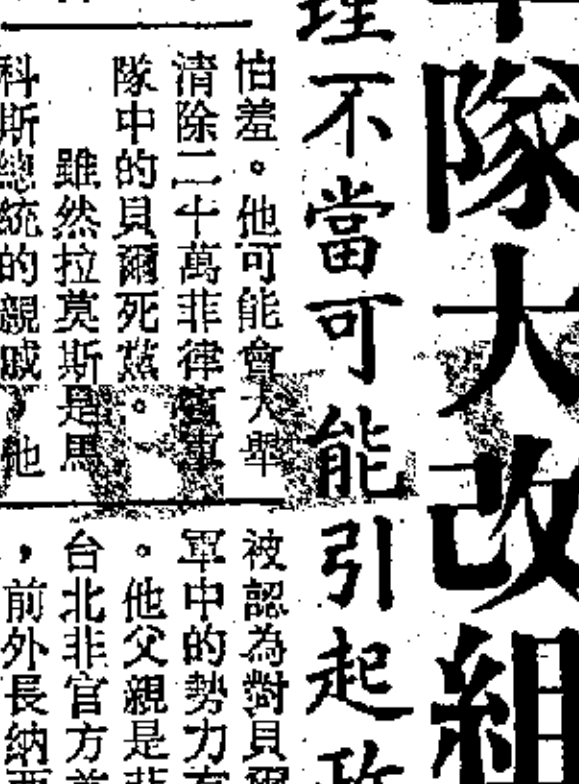 隊大改組
理不當可能引起政
怕羞。他可能會大舉
清除二十萬菲律賓軍
隊中的貝爾死黨。
雖然拉莫斯是馬
科斯總統的親戚,他
被認為對貝爾
軍中的勢力
。他父親是菲
台北非官方
,前外長納